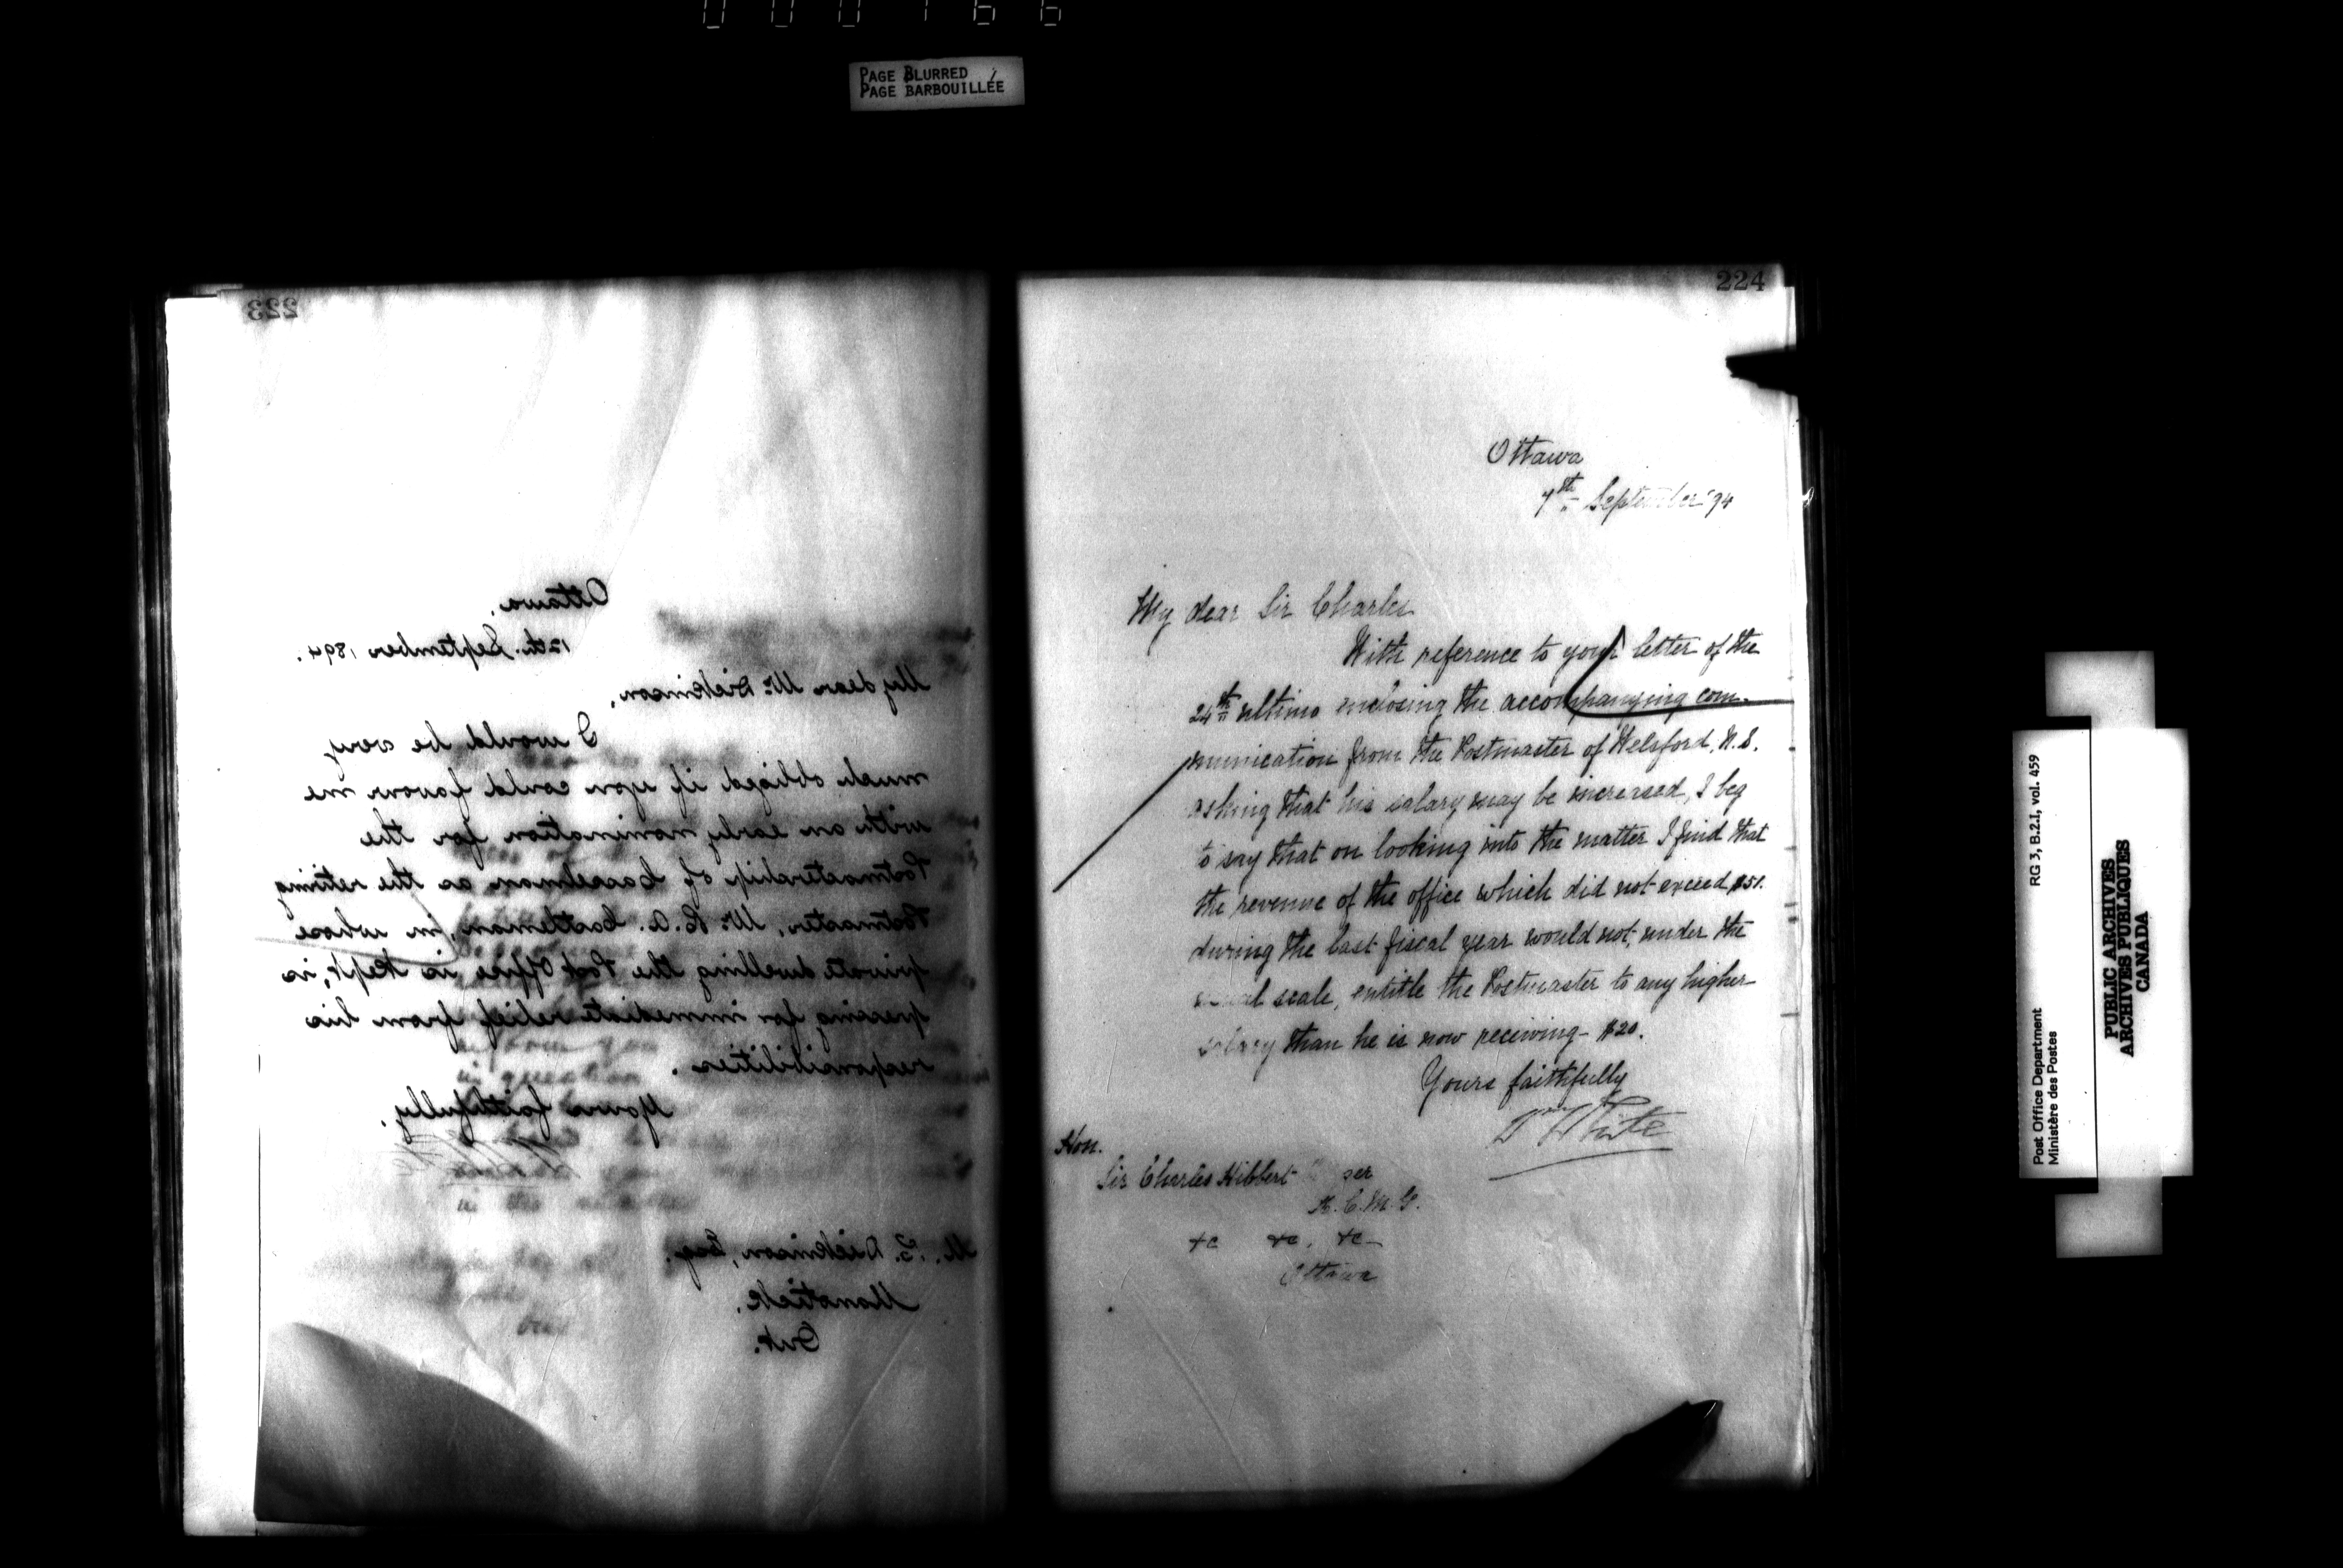 000166
PAGE BLURRED
PAGE BARBOUILLÉE
223
Ottawa,
12th. September, 1894.
My dear Mr. Dickinson,
I would be very
much obliged if you could favour me
with an early nomination for the
Postmastership of Casselman as the retiring
Postmaster, Mr. R. A. Castleman, in whose
private dwelling the Post Office is kept, is
pressing for immediate relief from his
responsibilities.
Yours faithfully,
M. F. Dickinson, Esq.
Manotick,
Ont.
224
Ottawa
7th September '94
My dear Sir Charles
With reference to your letter of the
24th ultimo enclosing the accompanying com-
munication from the Postmaster of Welsford, N.S.
asking that his salary may be increased, I beg
to say that on looking into the matter I find that
the revenue of the office which did not exceed $51.
during the last fiscal year would not, under the
scale, entitle the Postmaster to any higher
salary than he is now receiving - $20.
Yours faithfully
Hon.
Sir Charles Hibbert
K.C.M.G.
&c &c, &c
Ottawa
RG 3, B.2.I, vol. 459
Post Office Department
Ministère des Postes
PUBLIC ARCHIVES
ARCHIVES PUBLIQUES
CANADA